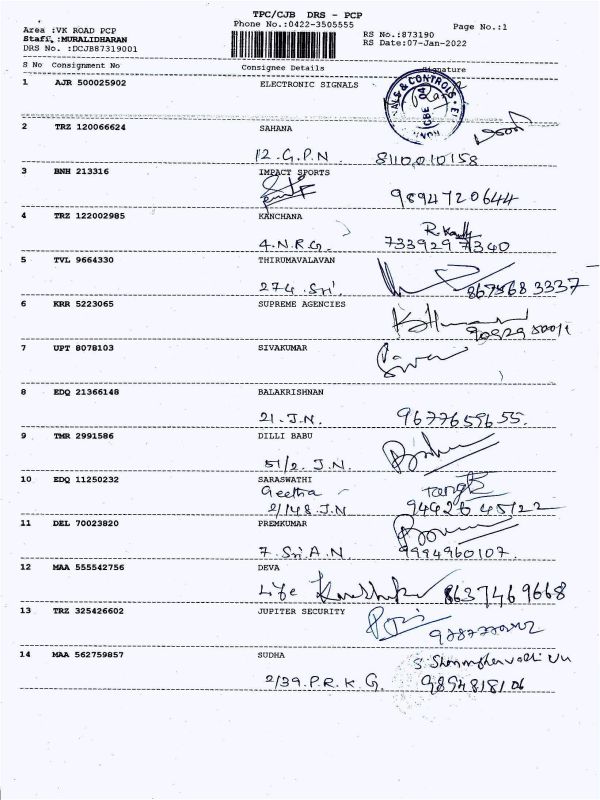 TPC/CJB DRS - PCP
Area :VK ROAD PCP Phone No.:0422-3505555 Page No.:1
Staff :MURALIDHARAN RS No.:873190
DRS No. :DCJB87319001 RS Date:07-Jan-2022
S No Consignment No Consignee Details Signature
1 AJR 500025902 ELECTRONIC SIGNALS
ALS & CONTROLS
CBE 04
2 TRZ 120066624 SAHANA
12. G.P.N. 8110,010158
3 BNH 213316 IMPACT SPORTS
9894720644
4 TRZ 122002985 KANCHANA
4. N.R.G. 7339297340
5 TVL 9664330 THIRUMAVALAVAN
274. Sri. 8675683337
6 KRR 5223065 SUPREME AGENCIES
7 UPT 8078103 SIVAKUMAR
Siva
8 EDQ 21366148 BALAKRISHNAN
21. J.N. 9677659655.
9 TMR 2991586 DILLI BABU
51/2. J.N.
10 EDQ 11250232 SARASWATHI
Geetha
2/148. J.N 94426 45122
11 DEL 70023820 PREMKUMAR
7. Sri A.N. 9994960107.
12 MAA 555542756 DEVA
Life 8637469668
13 TRZ 325426602 JUPITER SECURITY
14 MAA 562759857 SUDHA
2/39. P.R.K.G. 9894818106